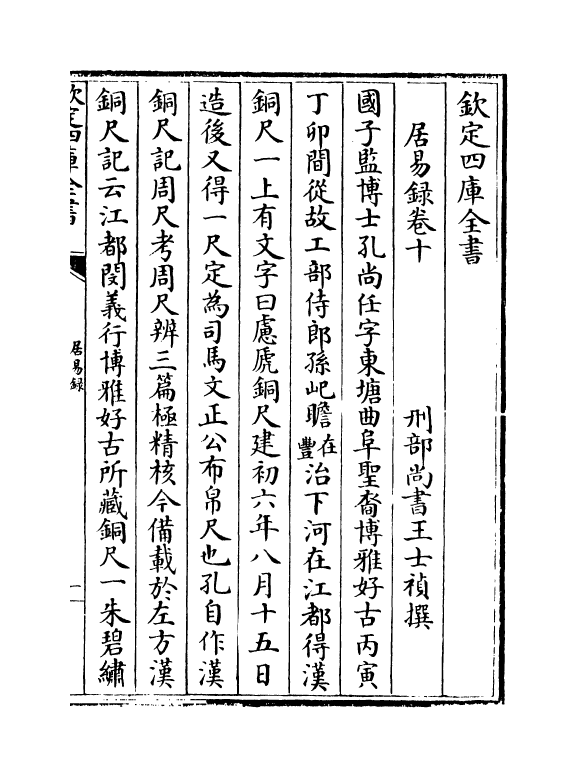 欽定四庫全書
居易録卷十
刑部尚書王士禎撰
國子監博士孔尚任字東塘曲阜聖裔博雅好古丙寅
丁卯間從故工部侍郎孫屺瞻在豐治下河在江都得漢
銅尺一上有文字曰慮虒銅尺建初六年八月十五日
造後又得一尺定為司馬文正公布帛尺也孔自作漢
銅尺記周尺考周尺辨三篇極精核今備載於左方漢
銅尺記云江都閔義行博雅好古所藏銅尺一朱碧繡
欽定四庫全書
居易録
一